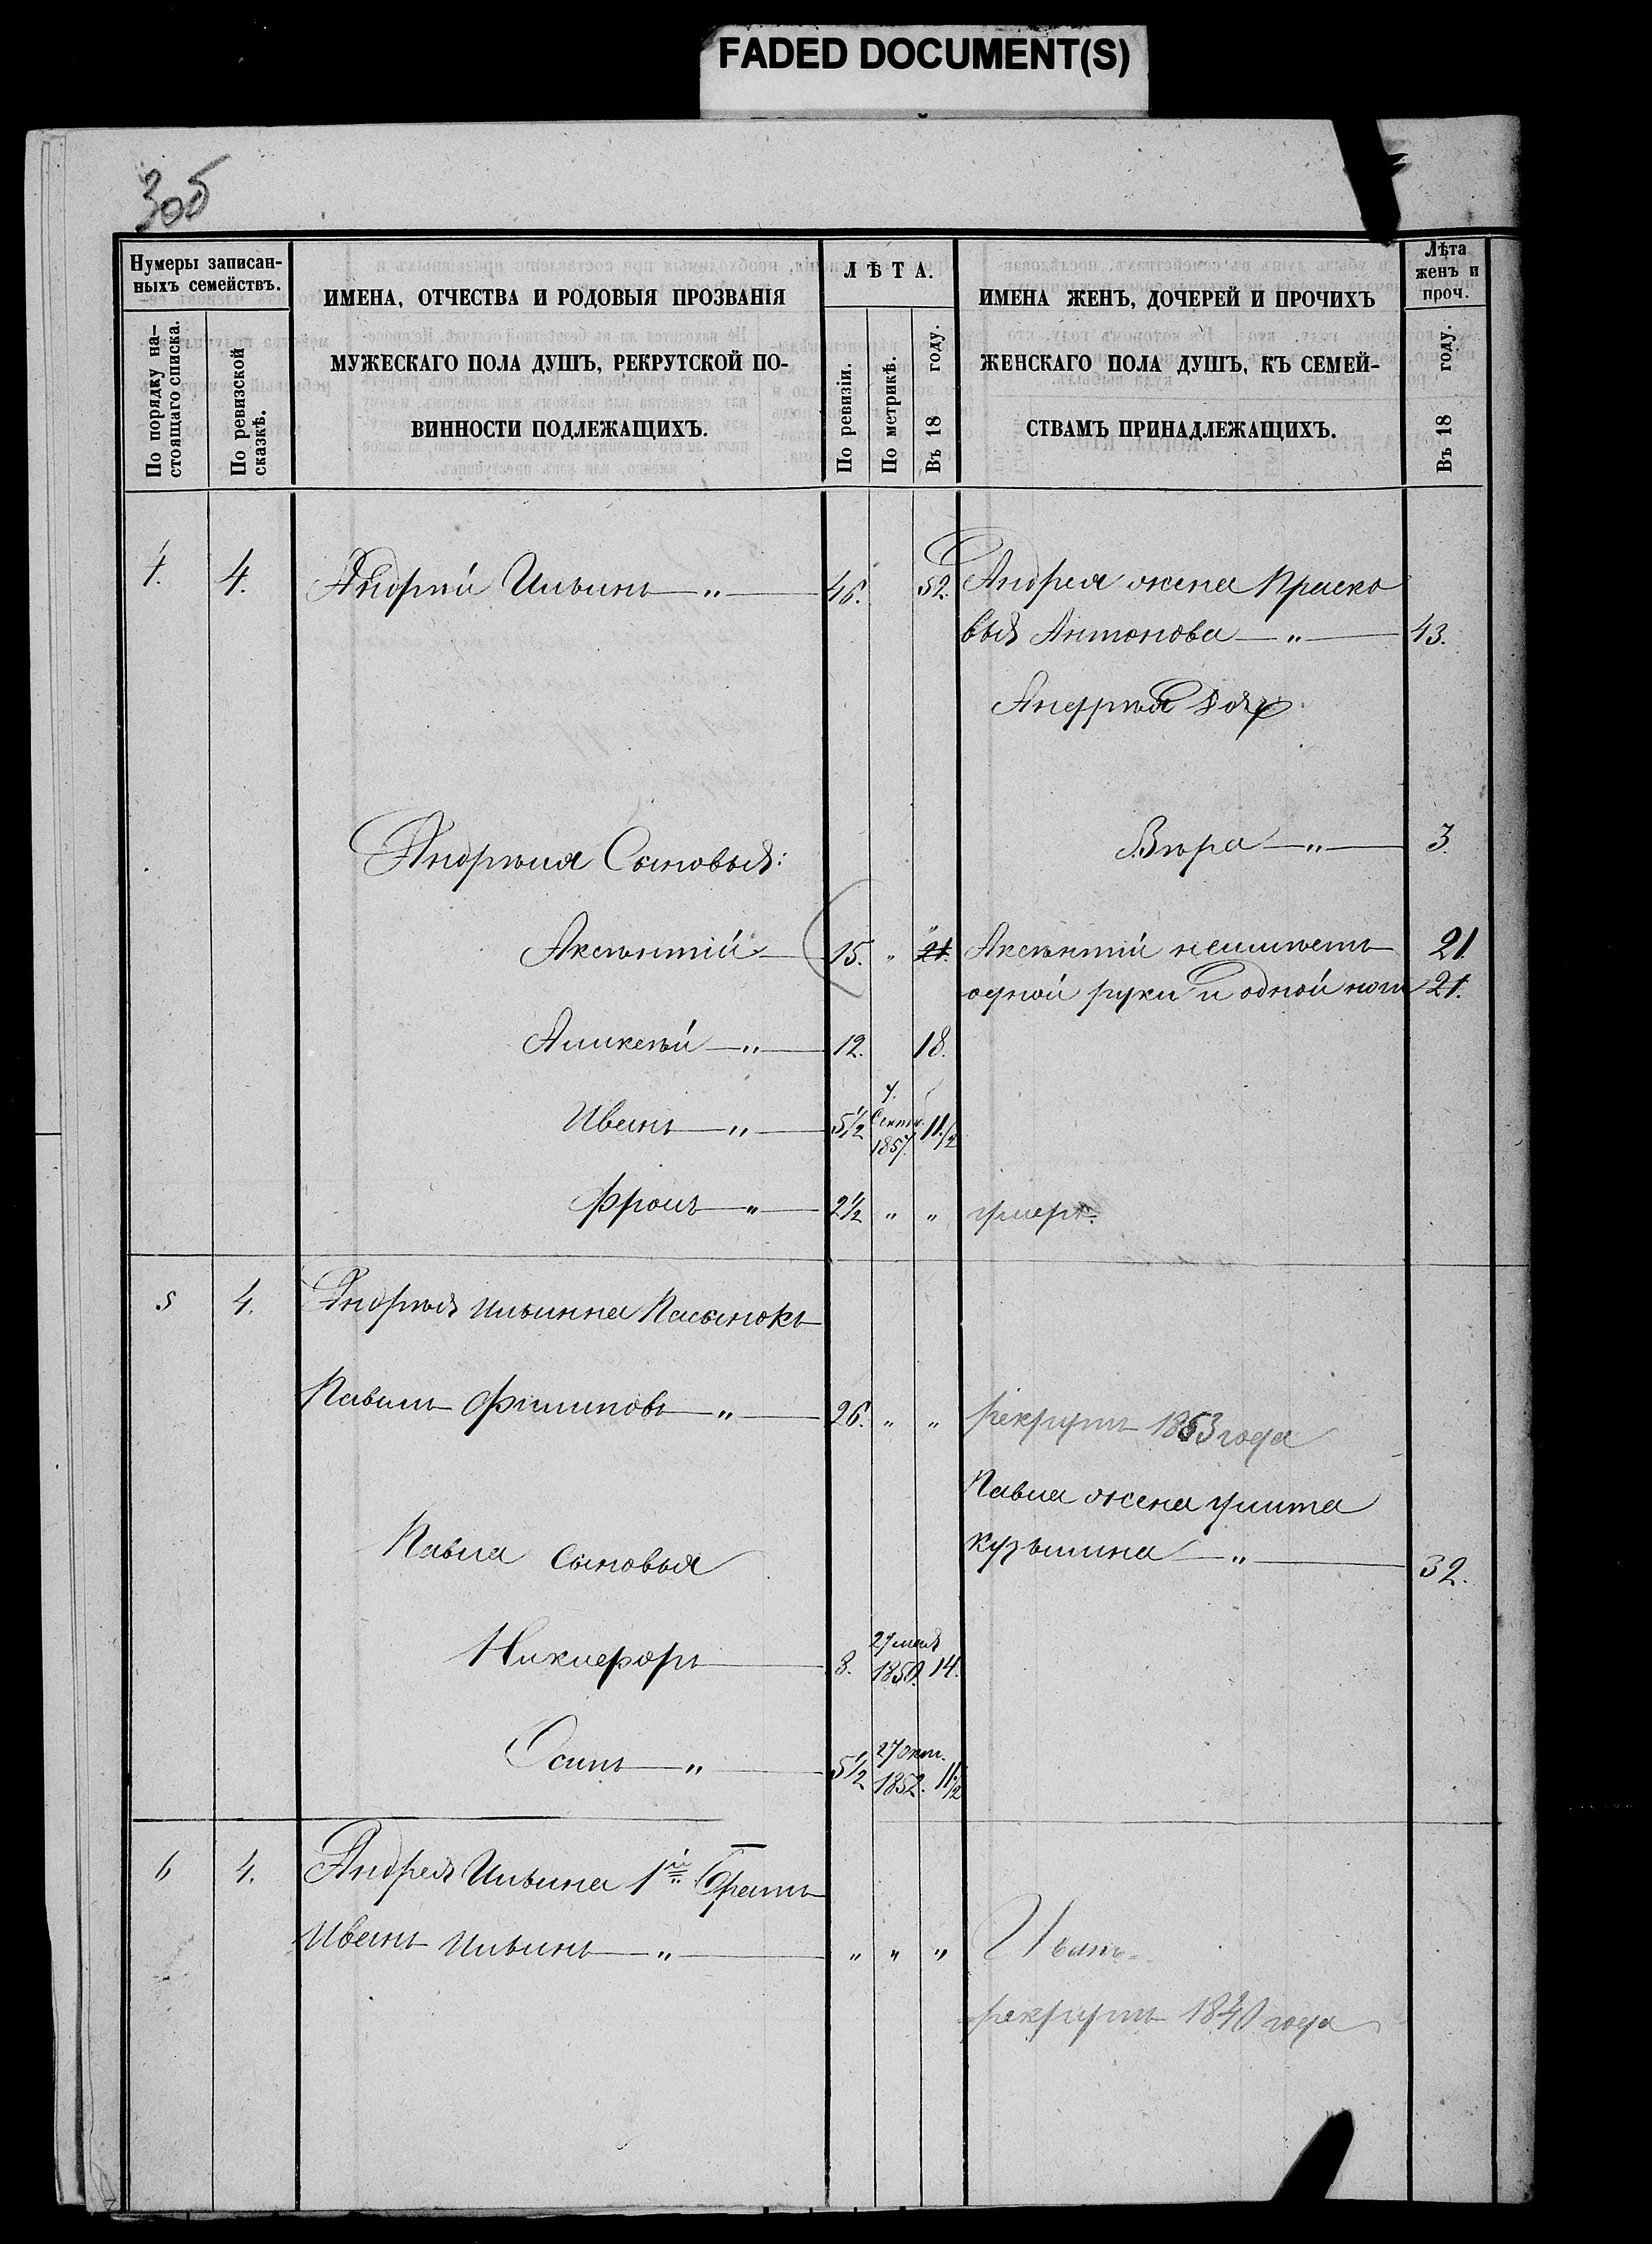 FADED DOCUMENT(S)
305
Нумеры записан-
ныхъ семействъ.
По порядку на-
стоящаго списка.
По ревизской
сказкѣ.
ИМЕНА, ОТЧЕСТВА И РОДОВЫЯ ПРОЗВАНІЯ
МУЖЕСКАГО ПОЛА ДУШЪ, РЕКРУТСКОЙ ПО-
ВИННОСТИ ПОДЛЕЖАЩИХЪ.
ЛѢТА.
По ревизіи.
По метрикѣ.
Въ 18 году.
ИМЕНА ЖЕНЪ, ДОЧЕРЕЙ И ПРОЧИХЪ
ЖЕНСКАГО ПОЛА ДУШЪ, КЪ СЕМЕЙ-
СТВАМЪ ПРИНАДЛЕЖАЩИХЪ.
Лѣта
женъ и
проч.
Въ 18 году.
4. 4. Андрѣй Ильинъ — „ — 46. 52. Андрея жена Праско
вья Антонова — „ — 43.
Андрѣя
Андрѣя Сыновья:
Вѣра — „ — 3.
Аксѣнтій — 15. „ 21. Аксѣнтій неимѣетъ 21
одной руки и одной ноги 21.
Аликсѣй — „ — 12. 18.
Иванъ — „ — 5½ Сентб. 1857. 11½
Фролъ — „ — 2½ „ „ умеръ.
5 4. Андрѣя Ильинна Пасынокъ
Павилъ Филиповъ — „ — 26. „ „ рекрутъ 1863 года
Павла жена Улита
Кузьмина — „ — 32.
Павла Сыновья
Никиѳоръ — 8. 27 мая 1850. 14.
Осипъ — „ — 5½ 27 окт. 1852. 11½
6 4. Андрея Ильина 1й братъ
Иванъ Ильинъ — „ — „ „ „ Иванъ
рекрутъ 1840 года